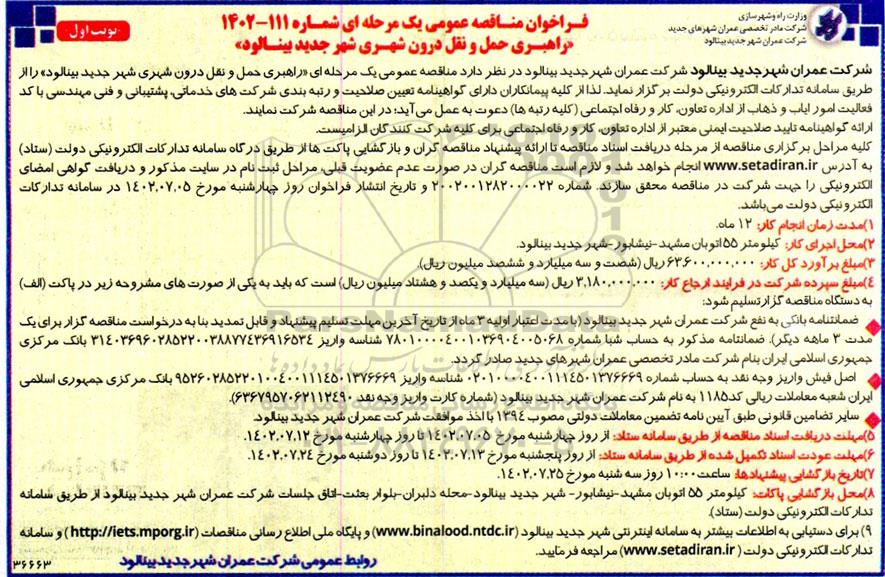 وزارت راه و شهرسازی
شرکت مادر تخصصی عمران شهرهای جدید
شرکت عمران شهر جدید بینالود
فراخوان مناقصه عمومی یک مرحله ای شماره ۱۱۱-۱۴۰۲
«راهبری حمل و نقل درون شهری شهر جدید بینالود»
نوبت اول
شرکت عمران شهر جدید بینالود شرکت عمران شهر جدید بینالود در نظر دارد مناقصه عمومی یک مرحله ای «راهبری حمل و نقل درون شهری شهر جدید بینالود» را از
طریق سامانه تدارکات الکترونیکی دولت برگزار نماید. لذا از کلیه پیمانکاران دارای گواهینامه تعیین صلاحیت و رتبه بندی شرکت های خدماتی، پشتیبانی و فنی مهندسی با کد
فعالیت امور ایاب و ذهاب از اداره تعاون، کار و رفاه اجتماعی (کلیه رتبه ها) دعوت به عمل می آید؛ در این مناقصه شرکت نمایند.
ارائه گواهینامه تایید صلاحیت ایمنی معتبر از اداره تعاون، کار و رفاه اجتماعی برای کلیه شرکت کنندگان الزامیست.
کلیه مراحل برگزاری مناقصه از مرحله دریافت اسناد مناقصه تا ارائه پیشنهاد مناقصه گران و بازگشایی پاکت ها از طریق درگاه سامانه تدارکات الکترونیکی دولت (ستاد)
به آدرس www.setadiran.ir انجام خواهد شد و لازم است مناقصه گران در صورت عدم عضویت قبلی، مراحل ثبت نام در سایت مذکور و دریافت گواهی امضای
الکترونیکی را جهت شرکت در مناقصه محقق سازند. شماره ۲۰۰۲۰۰۱۲۸۲۰۰۰۰۲۲ و تاریخ انتشار فراخوان روز چهارشنبه مورخ ۱۴۰۲.۰۷.۰۵ در سامانه تدارکات
الکترونیکی دولت می‌باشد.
۱)مدت زمان انجام کار: ۱۲ ماه.
۲)محل اجرای کار: کیلومتر ۵۵ اتوبان مشهد-نیشابور-شهر جدید بینالود.
۳)مبلغ برآورد کل کار: ۶۳.۶۰۰.۰۰۰.۰۰۰ ریال (شصت و سه میلیارد و ششصد میلیون ریال).
۴)مبلغ سپرده شرکت در فرایند ارجاع کار: ۳.۱۸۰.۰۰۰.۰۰۰ ریال (سه میلیارد و یکصد و هشتاد میلیون ریال) است که باید به یکی از صورت های مشروحه زیر در پاکت (الف)
به دستگاه مناقصه گزار تسلیم شود:
ضمانتنامه بانکی به نفع شرکت عمران شهر جدید بینالود (با مدت اعتبار اولیه ۳ ماه از تاریخ آخرین مهلت تسلیم پیشنهاد و قابل تمدید بنا به درخواست مناقصه گزار برای یک
مدت ۳ ماهه دیگر). ضمانتنامه مذکور به حساب شبا شماره ۷۸۰۱۰۰۰۰۴۰۰۱۰۳۶۹۰۴۰۰۵۰۶۸ شناسه واریز ۳۱۴۰۳۶۹۶۰۲۸۵۲۲۰۰۳۸۸۷۷۴۳۶۹۱۶۵۳۴ بانک مرکزی
جمهوری اسلامی ایران بنام شرکت مادر تخصصی عمران شهرهای جدید صادر گردد.
اصل فیش واریز وجه نقد به حساب شماره ۰۲۰۱۰۰۰۰۴۰۰۱۱۱۴۵۰۱۳۷۶۶۶۹ شناسه واریز ۹۵۲۶۰۲۸۵۲۲۰۱۰۰۴۰۰۱۱۱۴۵۰۱۳۷۶۶۶۹ بانک مرکزی جمهوری اسلامی
ایران شعبه معاملات ریالی کد ۱۱۸۵ به نام شرکت عمران شهر جدید بینالود (شماره کارت واریز وجه نقد ۶۳۶۷۹۵۷۰۶۲۱۱۲۴۹۰).
سایر تضامین قانونی طبق آیین نامه تضمین معاملات دولتی مصوب ۱۳۹۴ با اخذ موافقت شرکت عمران شهر جدید بینالود.
۵)مهلت دریافت اسناد مناقصه از طریق سامانه ستاد: از روز چهارشنبه مورخ ۱۴۰۲.۰۷.۰۵ تا روز چهارشنبه مورخ ۱۴۰۲.۰۷.۱۲.
۶)مهلت عودت اسناد تکمیل شده از طریق سامانه ستاد: از روز پنجشنبه مورخ ۱۴۰۲.۰۷.۱۳ تا روز دوشنبه مورخ ۱۴۰۲.۰۷.۲۴.
۷)تاریخ بازگشایی پیشنهادها: ساعت ۱۰:۰۰ روز سه شنبه مورخ ۱۴۰۲.۰۷.۲۵.
۸)محل بازگشایی پاکات: کیلومتر ۵۵ اتوبان مشهد-نیشابور- شهر جدید بینالود-محله دلبران-بلوار بعثت-اتاق جلسات شرکت عمران شهر جدید بینالود از طریق سامانه
تدارکات الکترونیکی دولت (ستاد).
۹) برای دستیابی به اطلاعات بیشتر به سامانه اینترنتی شهر جدید بینالود (www.binalood.ntdc.ir) و پایگاه ملی اطلاع رسانی مناقصات (http://iets.mporg.ir) و سامانه
تدارکات الکترونیکی دولت (www.setadiran.ir) مراجعه فرمایید.
روابط عمومی شرکت عمران شهر جدید بینالود
۳۶۶۶۳